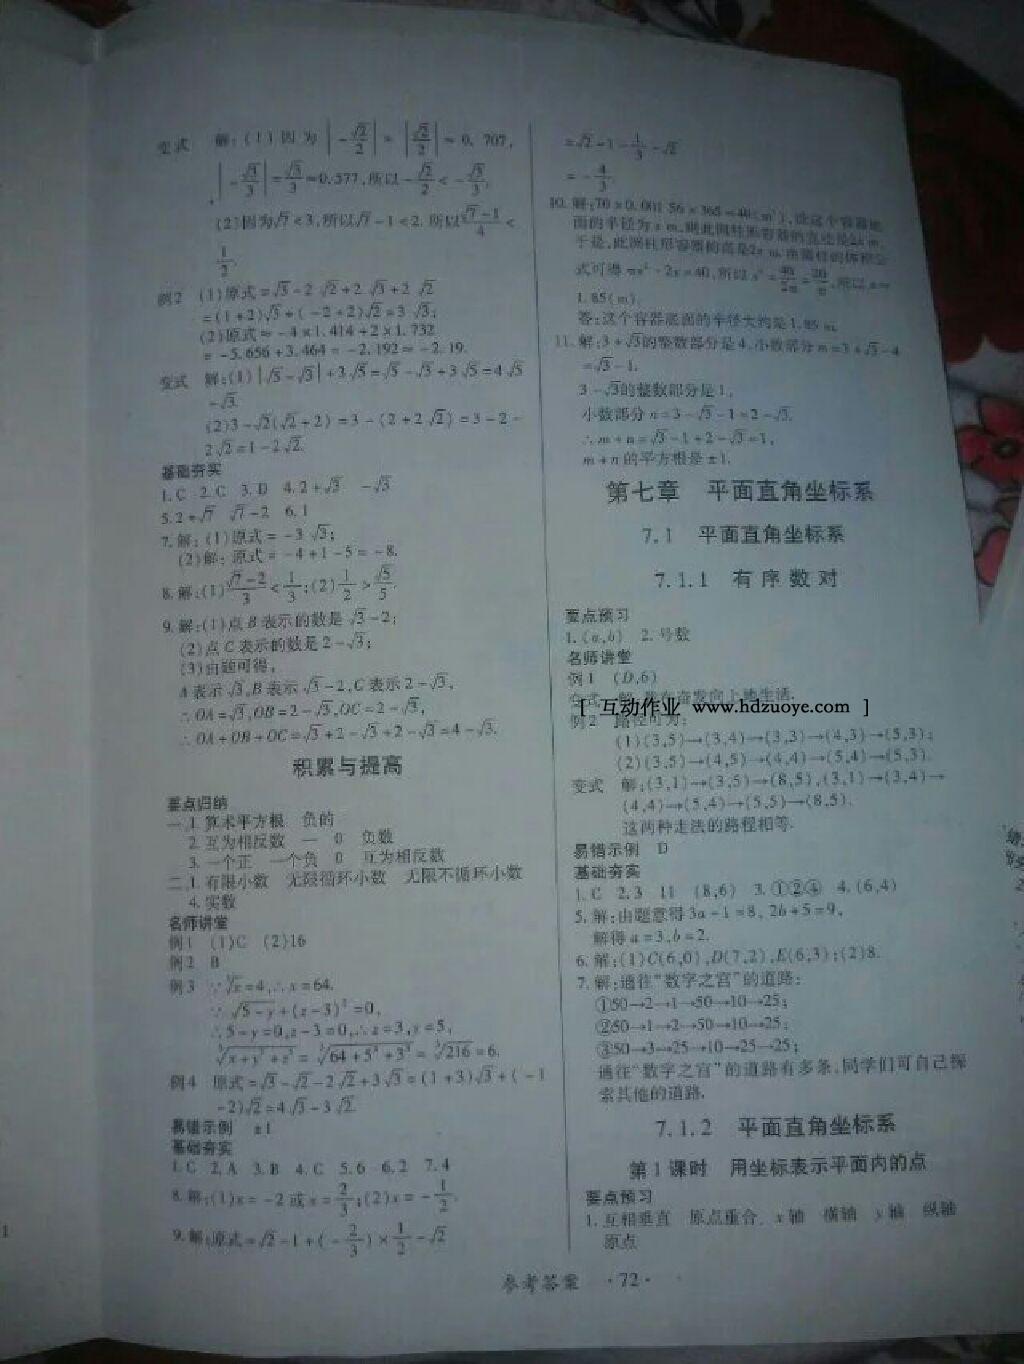 变式 解:(1)因为|-√2/2|=|√2/2|≈0.707,
|-√3/3|=√3/3≈0.577,所以-√2/2<-√3/3.
(2)因为√7<3,所以√7-1<2.所以(√7-1)/4<
1/2.
例2 (1)原式=√3-2√2+2√3+2√2
=(1+2)√3+(-2+2)√2=3√3;
(2)原式≈-4×1.414+2×1.732
=-5.656+3.464=-2.192≈-2.19.
变式 解:(1)|√5-√3|+3√5=√5-√3+3√5=4√5
-√3.
(2)3-√2(√2+2)=3-(2+2√2)=3-2-
2√2=1-2√2.
基础夯实
1.C 2.C 3.D 4.2+√3 -√3
5.2+√7 √7-2 6.1
7.解:(1)原式=-3√3;
(2)解:原式=-4+1-5=-8.
8.解:(1)(√7-2)/3<1/3;(2)1/2>√5/5.
9.解:(1)点B表示的数是√3-2;
(2)点C表示的数是2-√3;
(3)由题可得,
A表示√3,B表示√3-2,C表示2-√3,
∴OA=√3,OB=2-√3,OC=2-√3,
∴OA+OB+OC=√3+2-√3+2-√3=4-√3.
积累与提高
要点归纳
一、1.算术平方根 负的
2.互为相反数 一 0 负数
3.一个正 一个负 0 互为相反数
二、1.有限小数 无限循环小数 无限不循环小数
4.实数
名师讲堂
例1 (1)C (2)16
例2 B
例3 ∵∛x=4,∴x=64.
∵√(5-y)+(z-3)²=0,
∴5-y=0,z-3=0,∴z=3,y=5,
∛(x+y³+z³)=∛(64+5³+3³)=∛216=6.
例4 原式=√3-√2-2√2+3√3=(1+3)√3+(-1
-2)√2=4√3-3√2.
易错示例 ±1
基础夯实
1.C 2.A 3.B 4.C 5.6 6.2 7.4
8.解:(1)x=-2或x=2/3;(2)x=-1/2.
9.解:原式=√2-1+(-2/3)×1/2-√2
=√2-1-1/3-√2
=-4/3.
10.解:70×0.001 56×365≈40(m³),设这个容器底
面的半径为x m,则此圆柱形容器的直径是2x m.
于是,此圆柱形容器的高是2x m.由圆柱的体积公
式可得πx²·2x=40,所以x³=40/2π=20/π,所以x≈
1.85(m).
答:这个容器底面的半径大约是1.85 m.
11.解:3+√3的整数部分是4,小数部分m=3+√3-4
=√3-1.
3-√3的整数部分是1,
小数部分n=3-√3-1=2-√3.
∴m+n=√3-1+2-√3=1,
m+n的平方根是±1.
第七章 平面直角坐标系
7.1 平面直角坐标系
7.1.1 有序数对
要点预习
1.(a,b) 2.号数
名师讲堂
例1 (D,6)
[ 互动作业 www.hdzuoye.com ]
例2 路径可为:
(1)(3,5)→(3,4)→(3,3)→(4,3)→(5,3);
(2)(3,5)→(4,5)→(4,4)→(5,4)→(5,3).
变式 解:(3,1)→(3,5)→(8,5),(3,1)→(3,4)→
(4,4)→(5,4)→(5,5)→(8,5).
这两种走法的路程相等.
易错示例 D
基础夯实
1.C 2.3 11 (8,6) 3.①②④ 4.(6,4)
5.解:由题意得3a-1=8,2b+5=9,
解得a=3,b=2.
6.解:(1)C(6,0),D(7,2),E(6,3);(2)8.
7.解:通往“数字之宫”的道路:
①50→2→1→50→10→25;
②50→1→2→50→10→25;
③50→3→25→10→25→25;
通往“数字之宫”的道路有多条,同学们可自己探
索其他的道路.
7.1.2 平面直角坐标系
第1课时 用坐标表示平面内的点
要点预习
1.互相垂直 原点重合 x轴 横轴 y轴 纵轴
原点
参考答案 ·72·